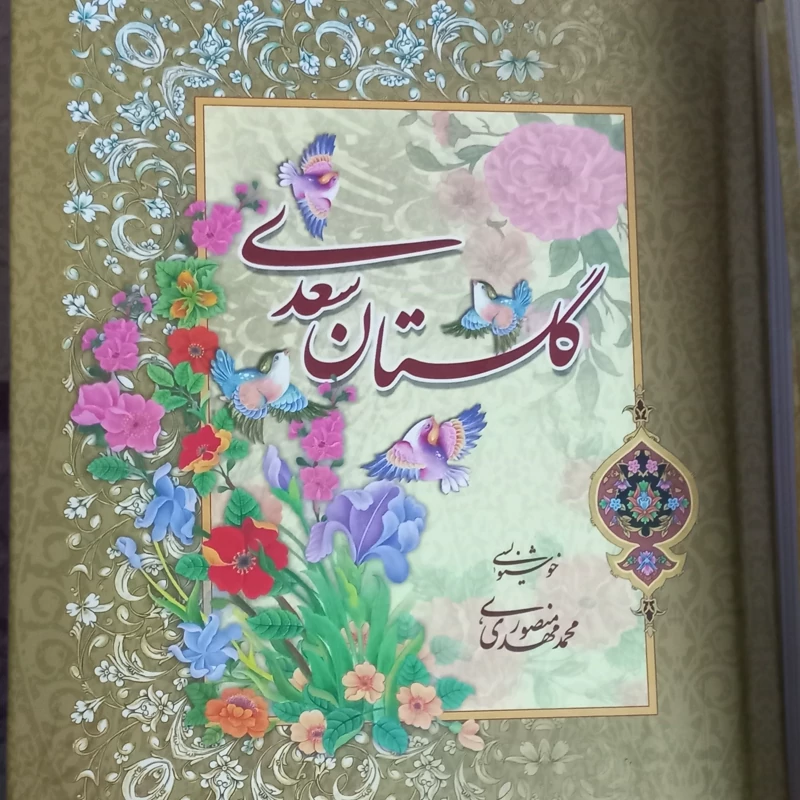 گلستان سعدی
خوشنویسی
محمدمهدی منصوری